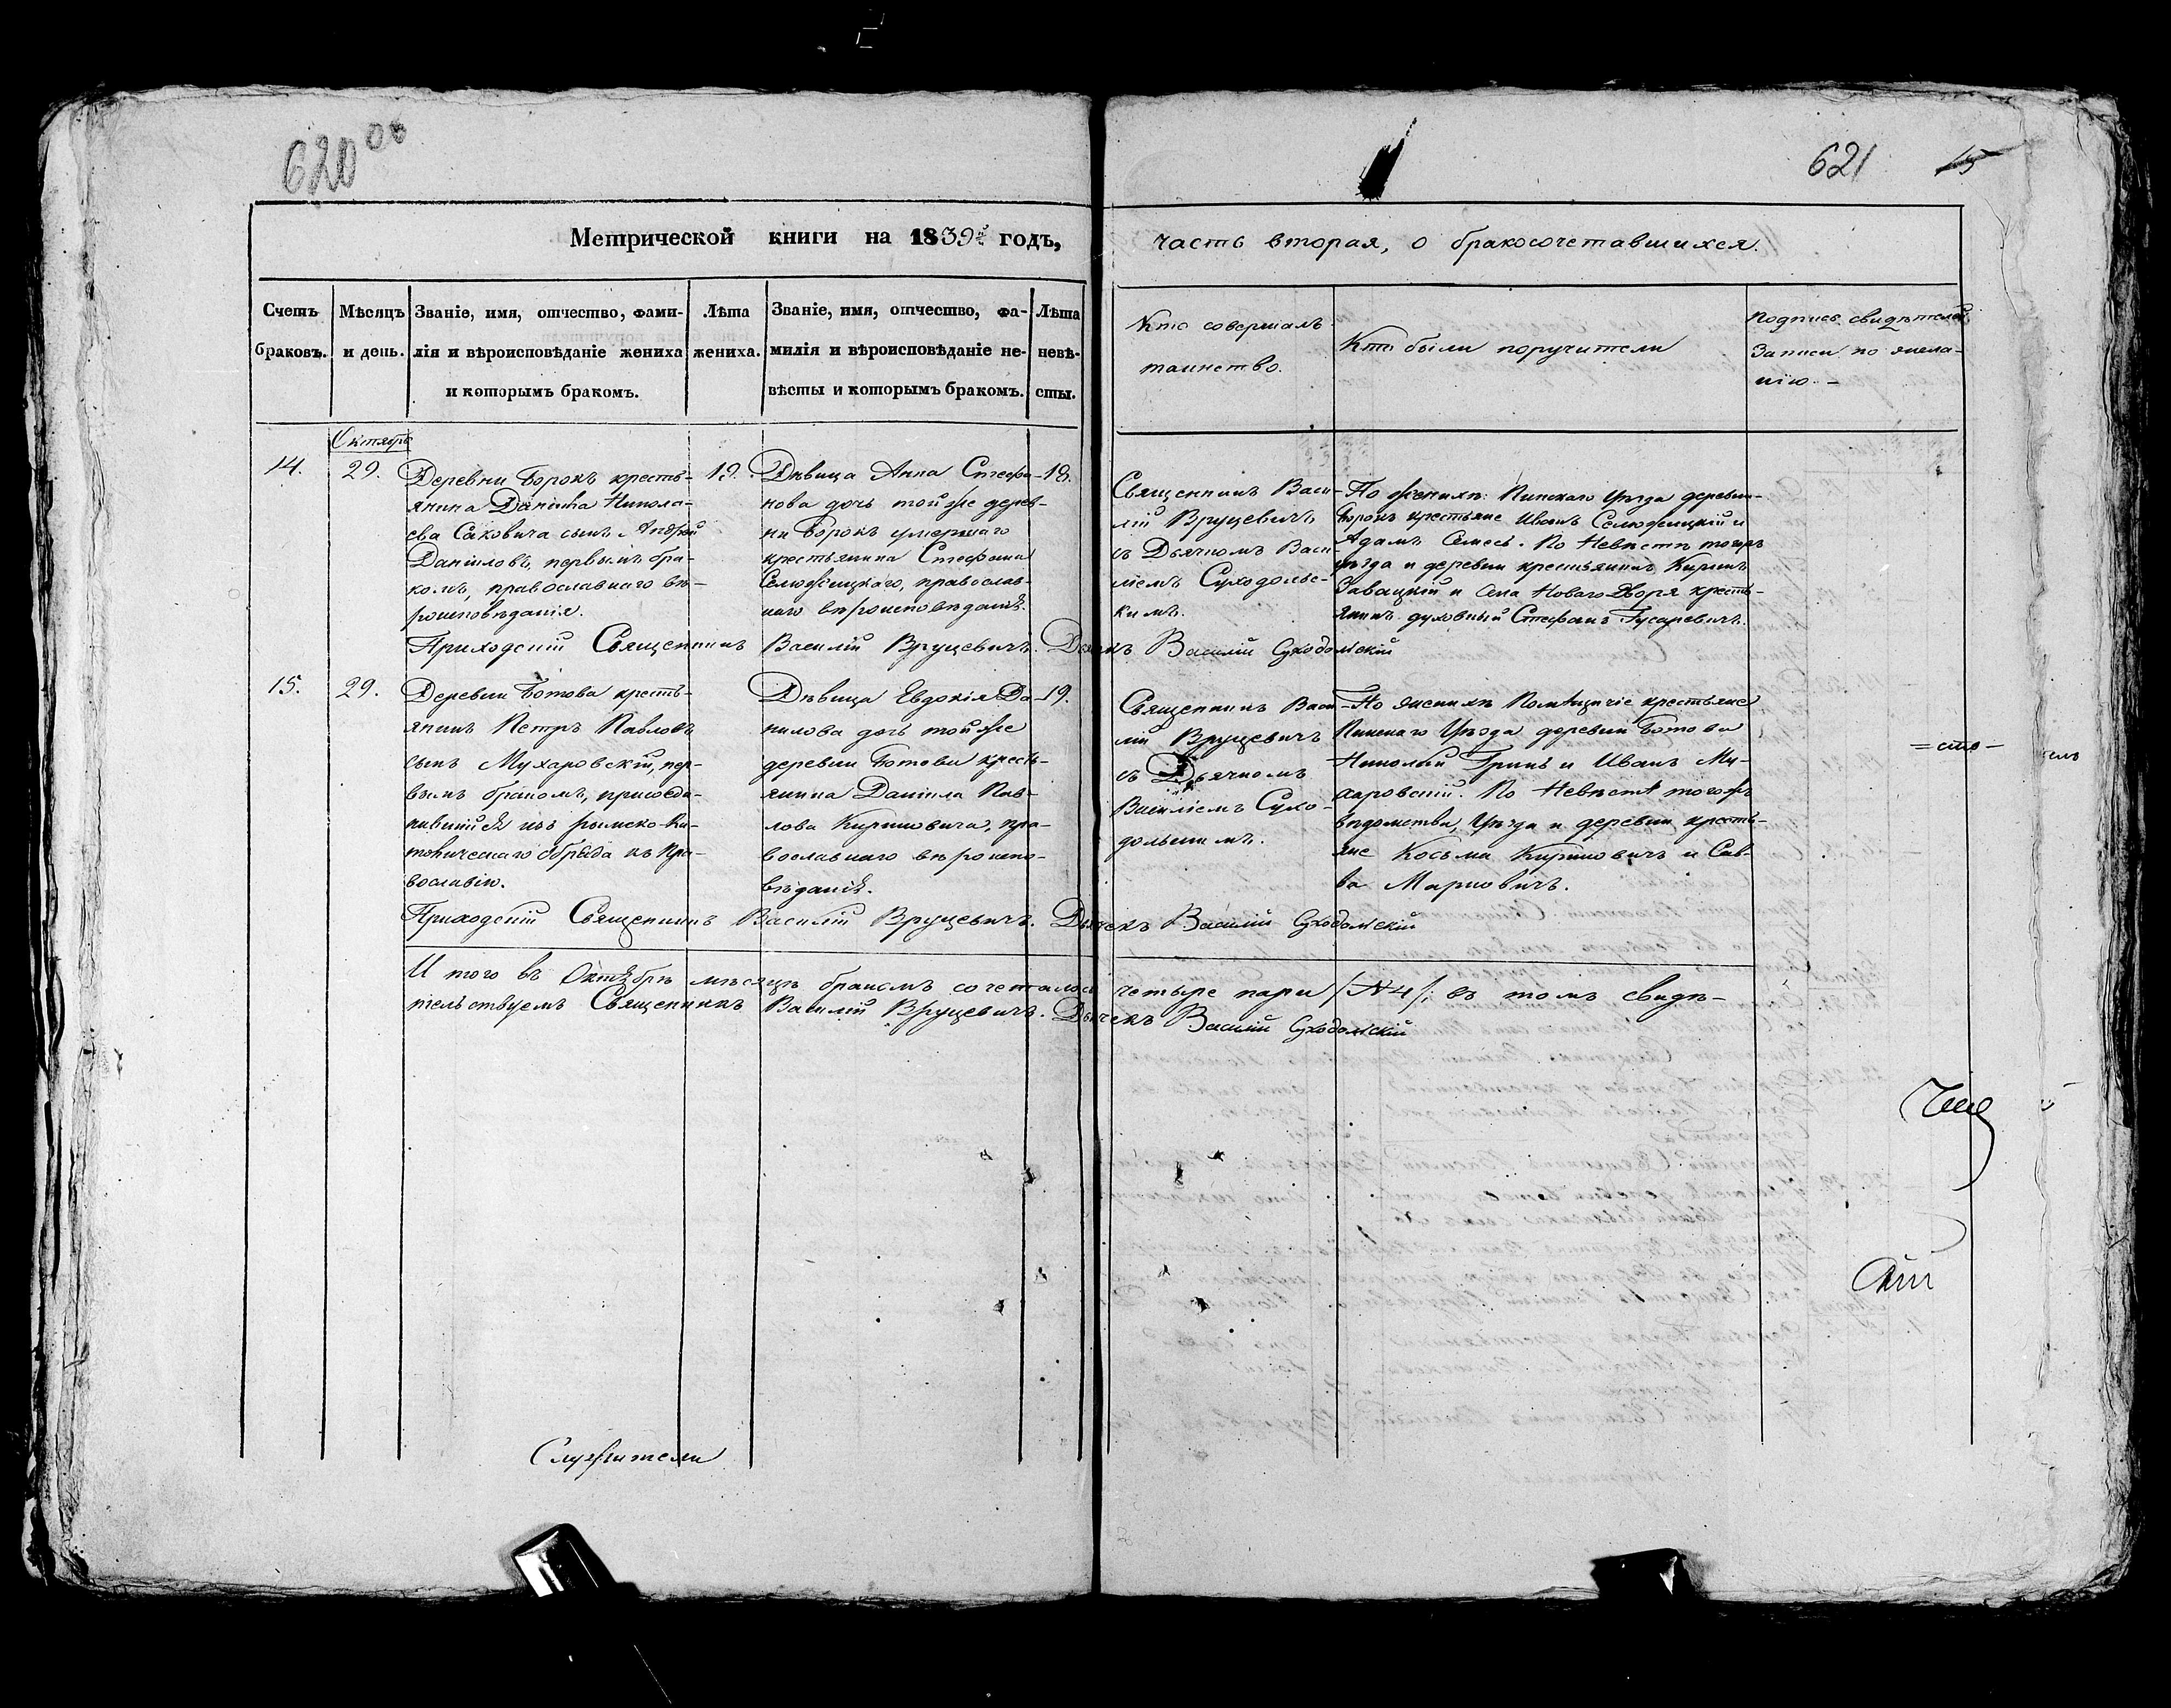 620 об
621 15
Метрической книги на 1839й годъ,
часть вторая, о бракосочетавшихся.
Счетъ браковъ.
Мѣсяцъ и день.
Званіе, имя, отчество, фами-
лія и вѣроисповѣданіе жениха
и которымъ бракомъ.
Лѣта жениха.
Званіе, имя, отчество, фа-
милія и вѣроисповѣданіе не-
вѣсты и которымъ бракомъ.
Лѣта
невѣ-
сты.
Кто совершалъ
таинство.
Кто были поручители
Подпись свидѣтелей
Записи по жела-
нію. –
Октябрь
14.
29.
Деревни Борокъ кресть-
янина Даніила Никола-
ева Саковича сынъ Андрей
Даніиловъ, первымъ бра-
комъ, православнаго вѣ-
роисповѣданія.
19.
Дѣвица Анна Стефа-
нова дочь той же дерев-
ни Борокъ умершаго
крестьянина Стефана
Селюжицкаго, православ-
наго вѣроисповѣданія.
18.
Священникъ Васи-
лій Вруцевичъ
съ Дьячкомъ Васи-
ліемъ Суходольс-
кимъ.
По женихѣ: Пинскаго Уѣзда деревни
Борокъ крестьяне Иванъ Селюжицкій и
Адамъ Семесь. По Невѣстѣ тогожъ
уѣзда и деревни крестьянинъ Кирилъ
Завацкій и Села Новаго Двора кресть-
янинъ духовный Стефанъ Гусаревичъ.
Приходскій Священникъ Василій Вруцевичъ. Дьячекъ Василій Суходольскій
15.
29.
Деревни Ботова кресть-
янинъ Петръ Павловъ
сынъ Мухаровскій, пер-
вымъ бракомъ, присоеди-
нившийся изъ римско-Ка-
толическаго обряда къ Пра-
вославію.
Дѣвица Евдокія Да-
нилова дочь той же
деревни Ботовы кресть-
янина Даніила Пав-
лова Кириловича, пра-
вославнаго вѣроиспо-
вѣданія.
19.
Священникъ Васи-
лій Вруцевичъ
съ Дьячкомъ
Василіемъ Сухо-
дольскимъ.
По женихѣ Помѣщичіе крестьяне
Пинскаго Уѣзда деревни Ботова
Николай Гринь и Иванъ Му-
харовскій. По Невѣстѣ тогожъ
вѣдомства, Уѣзда и деревни кресть-
яне Косьма Кириловичъ и Сав-
ва Марковичъ.
Приходскій Священникъ Василій Вруцевичъ. Дьячекъ Василій Суходольскій
И того въ Октябрѣ мѣсяцѣ бракомъ сочеталось четыре пары /№4/; въ томъ свидѣ-
тельствуемъ Священникъ Василій Вруцевичъ. Дьячекъ Василій Суходольскій
Служители